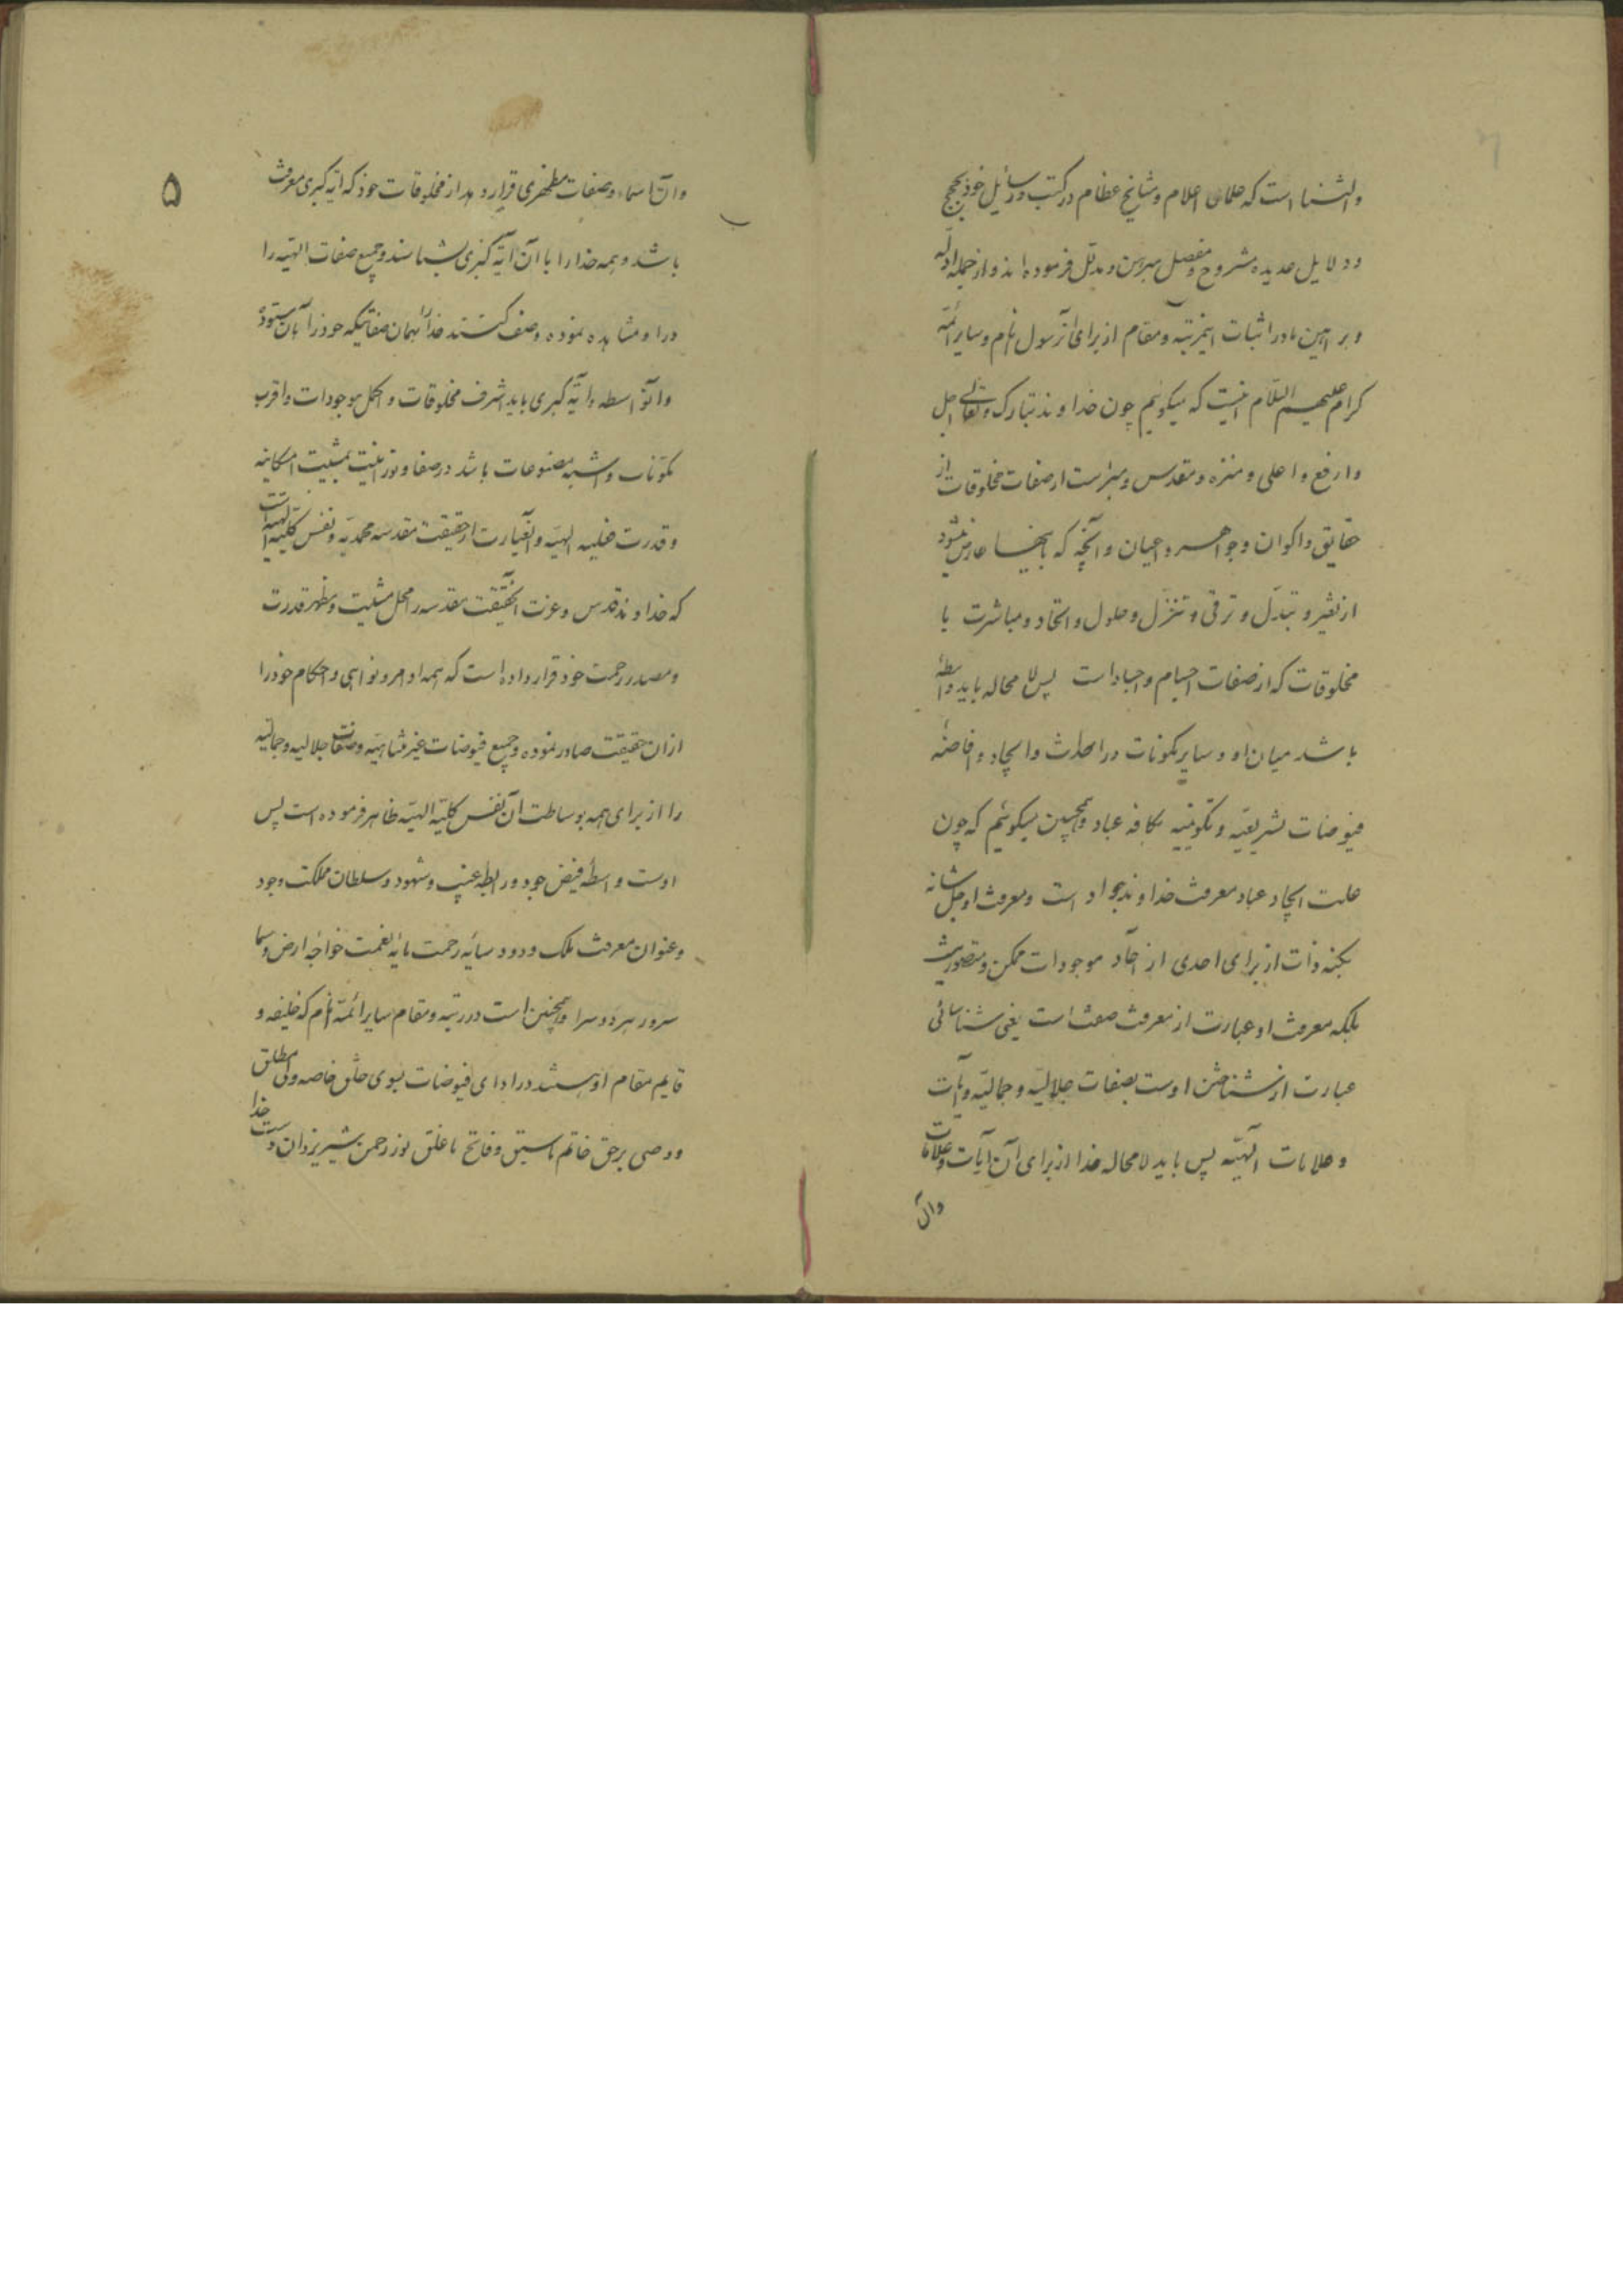 والثنا است که علمای اعلام و مشایخ عظام در کتب و رسائل خود بحجج
و دلایل عدیده مشروح و مفصل مبرهن و مدلل فرموده‌اند و از جمله ادلّه
و براهین ما در اثبات اینمرتبه و مقام از برای آنرسول انام و سایر ائمّه
کرام علیهم السّلام اینست که میگوئیم چون خداوند تبارک و تعالی اجل
و ارفع و اعلی و منزه و مقدس و مبراست از صفات مخلوقات از
حقایق و اکوان و جواهر و اعیان و آنچه که باینها عارض میشود
از تغیر و تبدّل و ترقی و تنزّل و حلول و اتحاد و مباشرت با
مخلوقات که از صفات اجسام و اجساد است پس لا محاله باید واسطهٔ
باشد میان او و سایر مکونات در احداث و ایجاد و افاضهٔ
فیوضات تشریعیّه و تکوینیه بکافه عباد و همچنین میگوئیم که چون
علت ایجاد عباد معرفت خداوند جواد است و معرفت او جل شانه
بکنه ذات از برای احدی از آحاد موجودات ممکن و متصور نیست
بلکه معرفت او عبارت از معرفت صفت است یعنی شناسائی
عبارت از شناختن اوست بصفات جلالیّه و جمالیّه و آیات
و علامات الهیّه پس باید لامحاله خدا از برای آن آیات و علامات
وآن
۵
وآن اسماء و صفات مظهری قرار دهد از مخلوقات خود که آیهٔ کبری معرفت
باشد و همه خدا را با آن آیهٔ کبری بشناسند و جمیع صفات الهیّه را
در او مشاهده نموده وصف کنند خدا را بهمان صفاتیکه خود را بآن ستوده
و آنواسطه و آیهٔ کبری باید اشرف مخلوقات و اکمل موجودات و اقرب
مکوّنات و اشبه مصنوعات باشد در صفا و نورانیت بمشیت امکانیه
و قدرت فعلیه الهیّه و آنعبارت از حقیقت مقدسه محمدیّه و نفس کلیّه الهیّه است
که خداوند قدس و عزت آنحقیقت مقدسه را محل مشیت و مظهر قدرت
و مصدر رحمت خود قرار داده است که همه اوامر و نواهی و احکام خود را
از ان حقیقت صادر نموده و جمیع فیوضات غیر متناهیّه و صفات جلالیه و جمالیّه
را از برای همه بوساطت آن نفس کلیّه الهیّه ظاهر فرموده است پس
اوست واسطهٔ فیض جود و رابطه غیب و شهود و سلطان مملکت وجود
و عنوان معرفت ملک ودود سایهٔ رحمت مایهٔ نعمت خواجهٔ ارض و سما
سرور هر دو سرا و همچنین است در رتبه و مقام سایر ائمّه انام که خلیفه و
قایم مقام او هستند در ادای فیوضات بسوی خلق خاصه ولی مطلق
و وصی برحق خاتم ما سبق و فاتح ما غلق نور رحمن شیر یزدان دست خدا